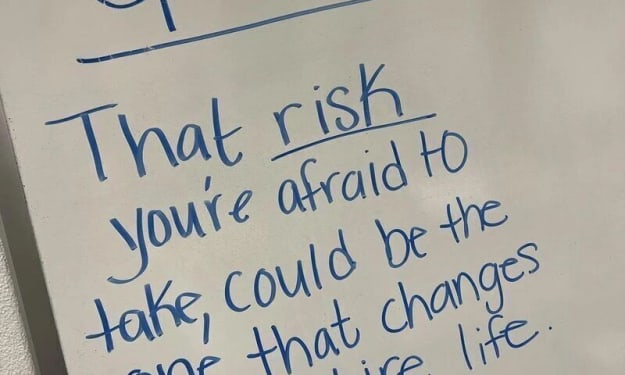 That risk
you're afraid to
take, could be the
one that changes
life.